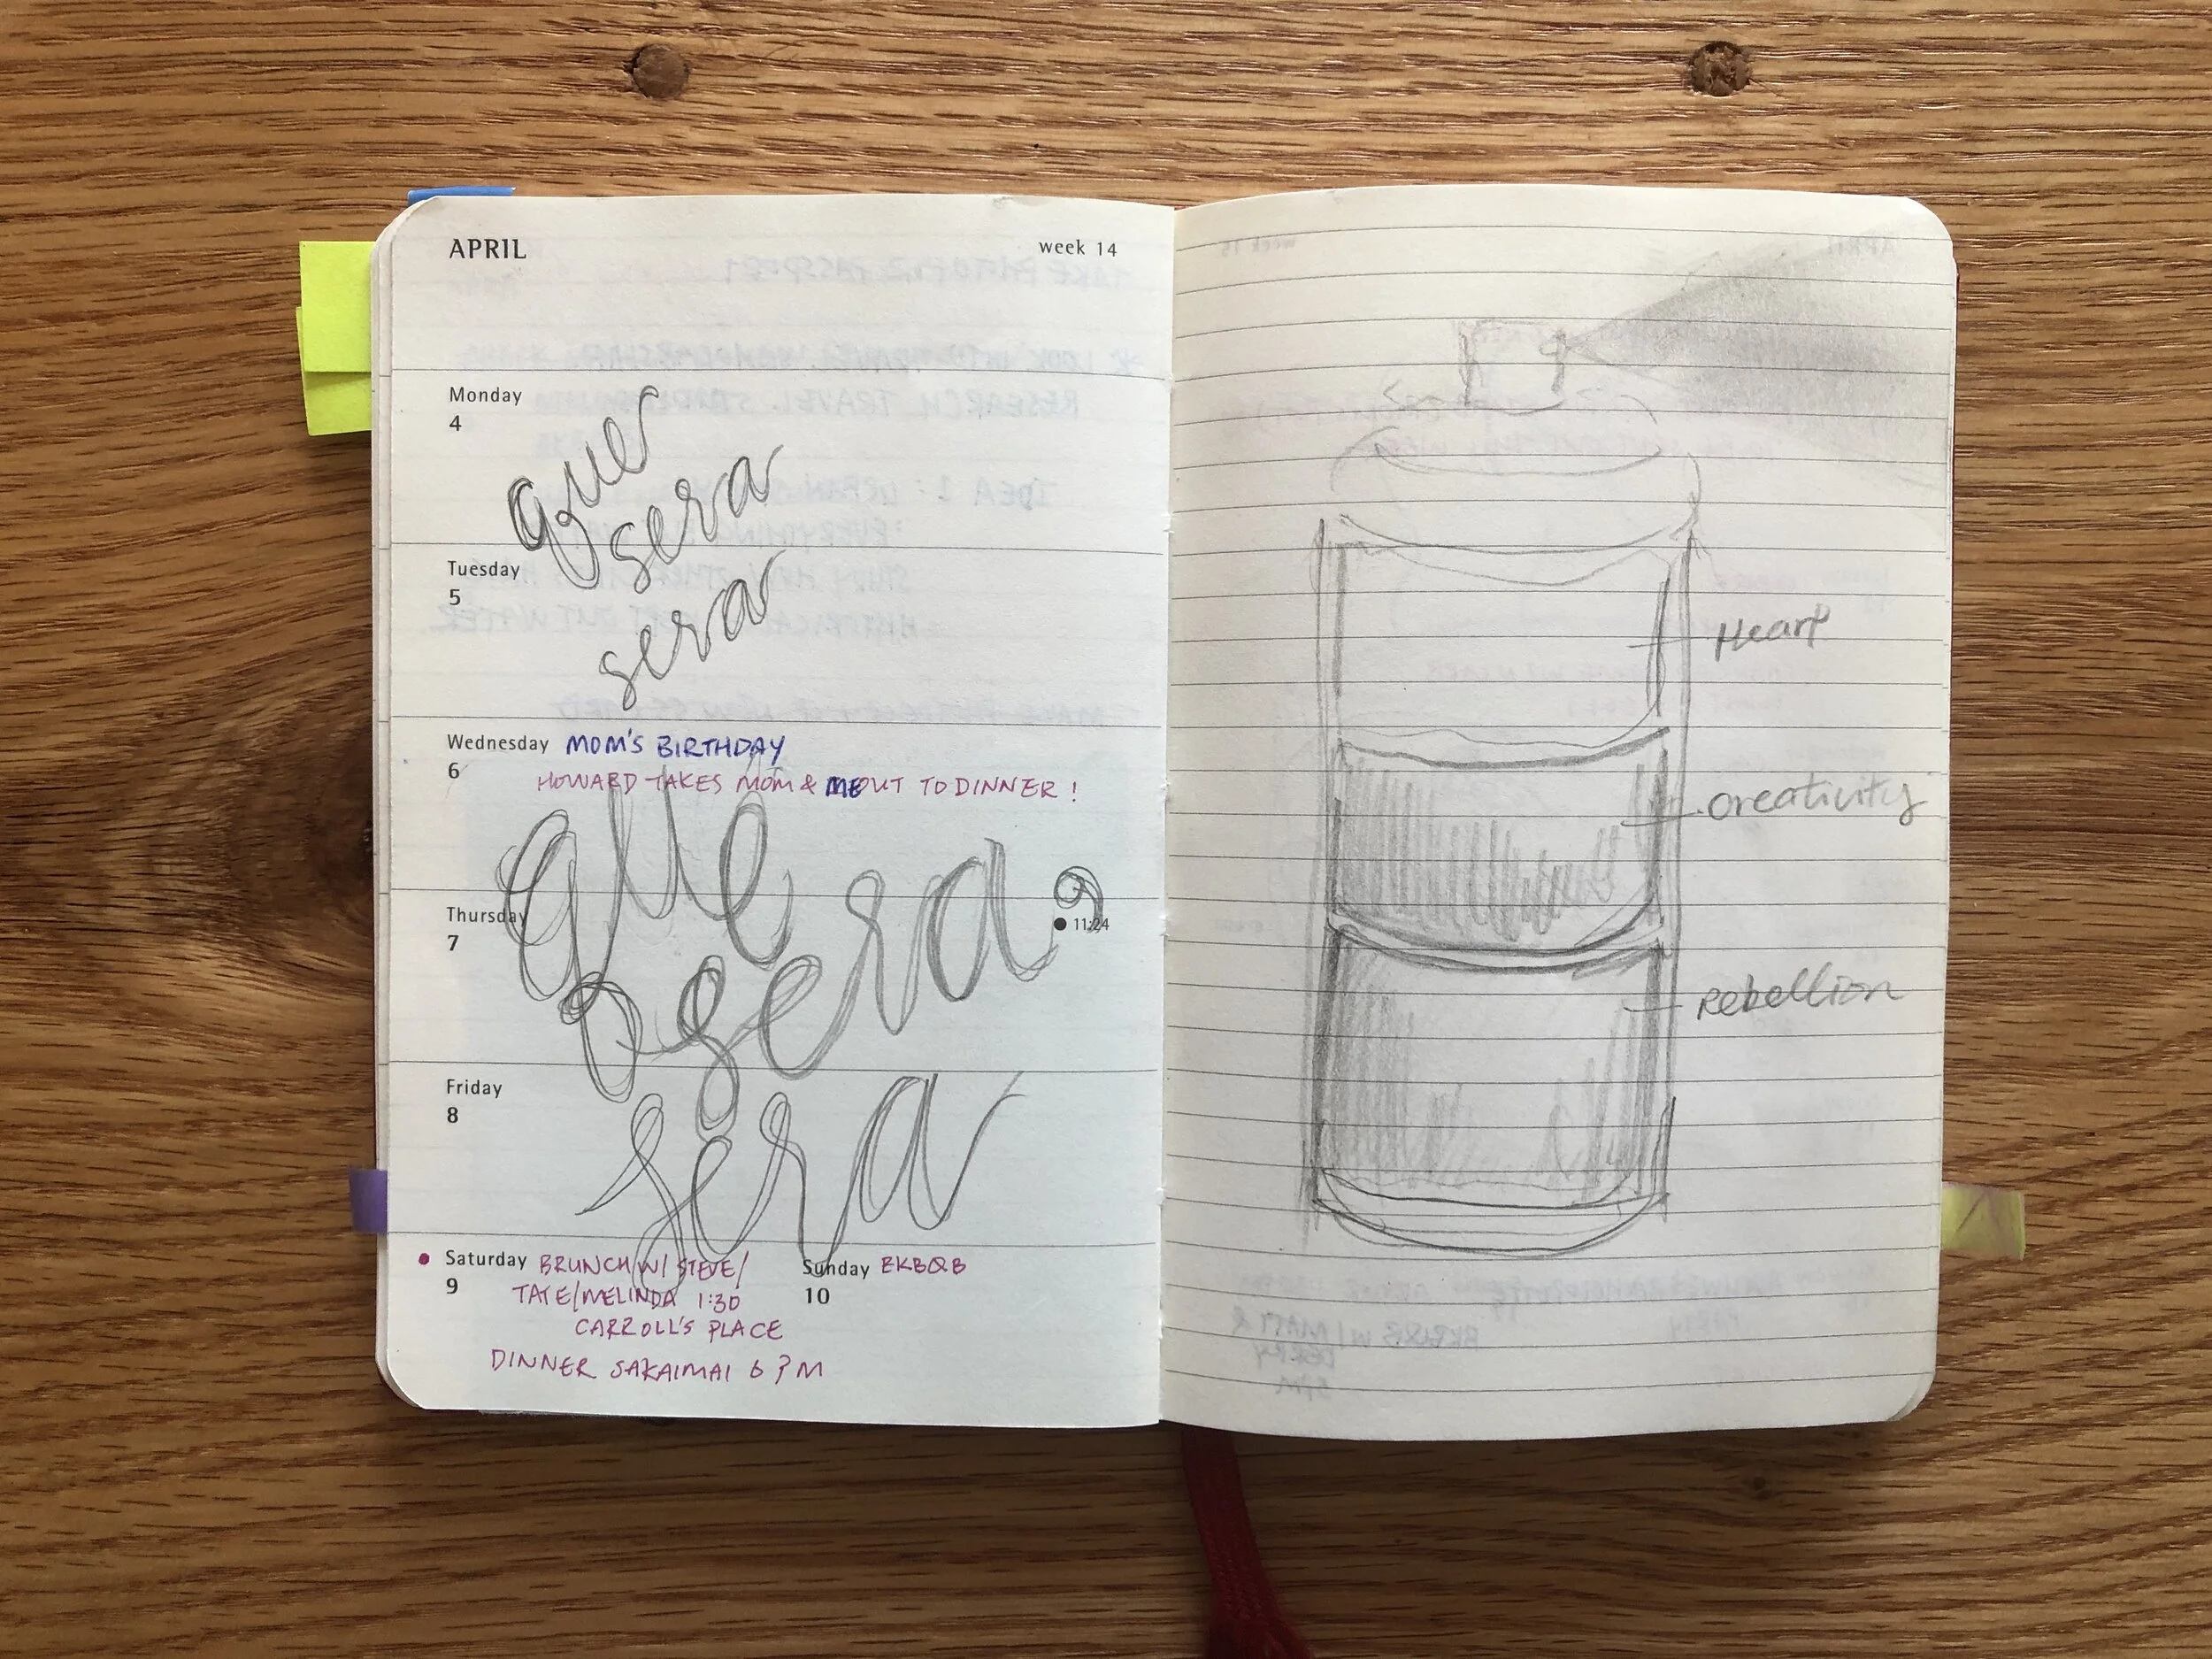 APRIL week 14
Monday
4
que
sera
sera
Tuesday
5
Wednesday MOM'S BIRTHDAY
6
HOWARD TAKES MOM & ME OUT TO DINNER!
que
sera,
sera
Thursday
7
● 11:24
Friday
8
Saturday BRUNCH W/ STEVE/
9
TATE/MELINDA 1:30
CARROLL'S PLACE
DINNER SAKAIMAI 6 PM
Sunday BKB&B
10
Heart
creativity
Rebellion